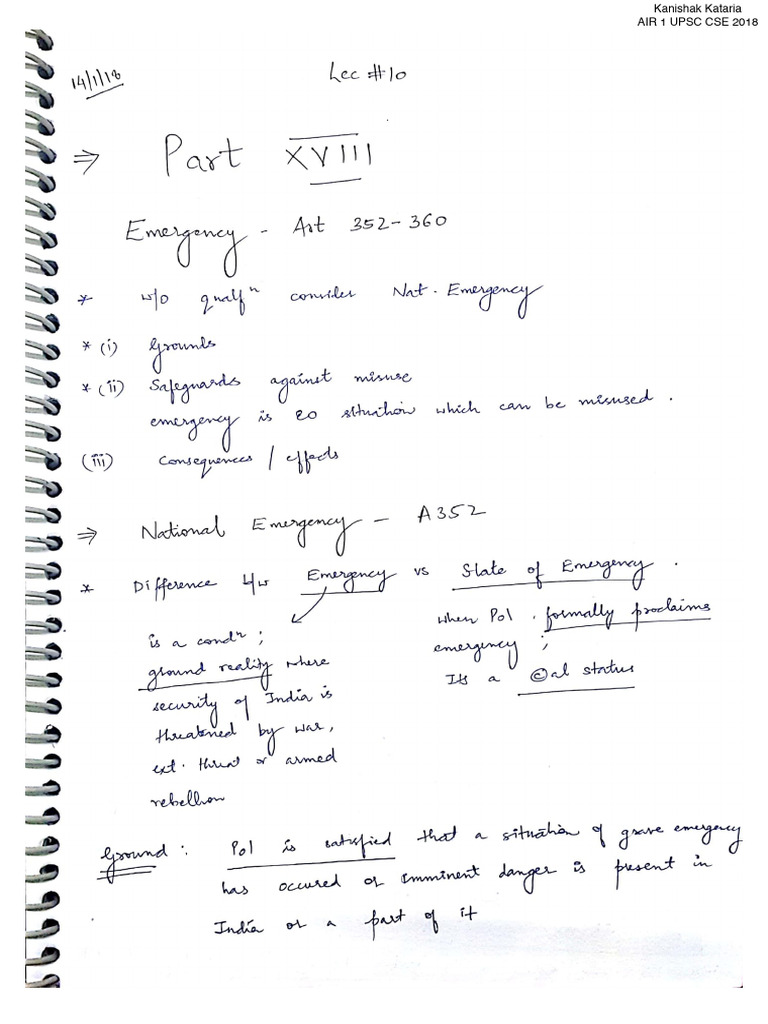 Kanishak Kataria
AIR 1 UPSC CSE 2018
14/1/18
Lec #10
⇒ Part XVIII
Emergency - Art 352-360
* w/o qualfⁿ consider Nat. Emergency
* (i) Grounds
* (ii) Safeguards against misuse
emergency is so situation which can be misused.
(iii) Consequences / effects
⇒ National Emergency - A352
* Difference b/w Emergency vs State of Emergency.
is a condⁿ;
ground reality where
security of India is
threatened by war,
ext. threat or armed
rebellion
when PoI. formally proclaims
emergency;
Its a ©al status
Ground: PoI is satisfied that a situation of grave emergency
has occured or imminent danger is present in
India or a part of it